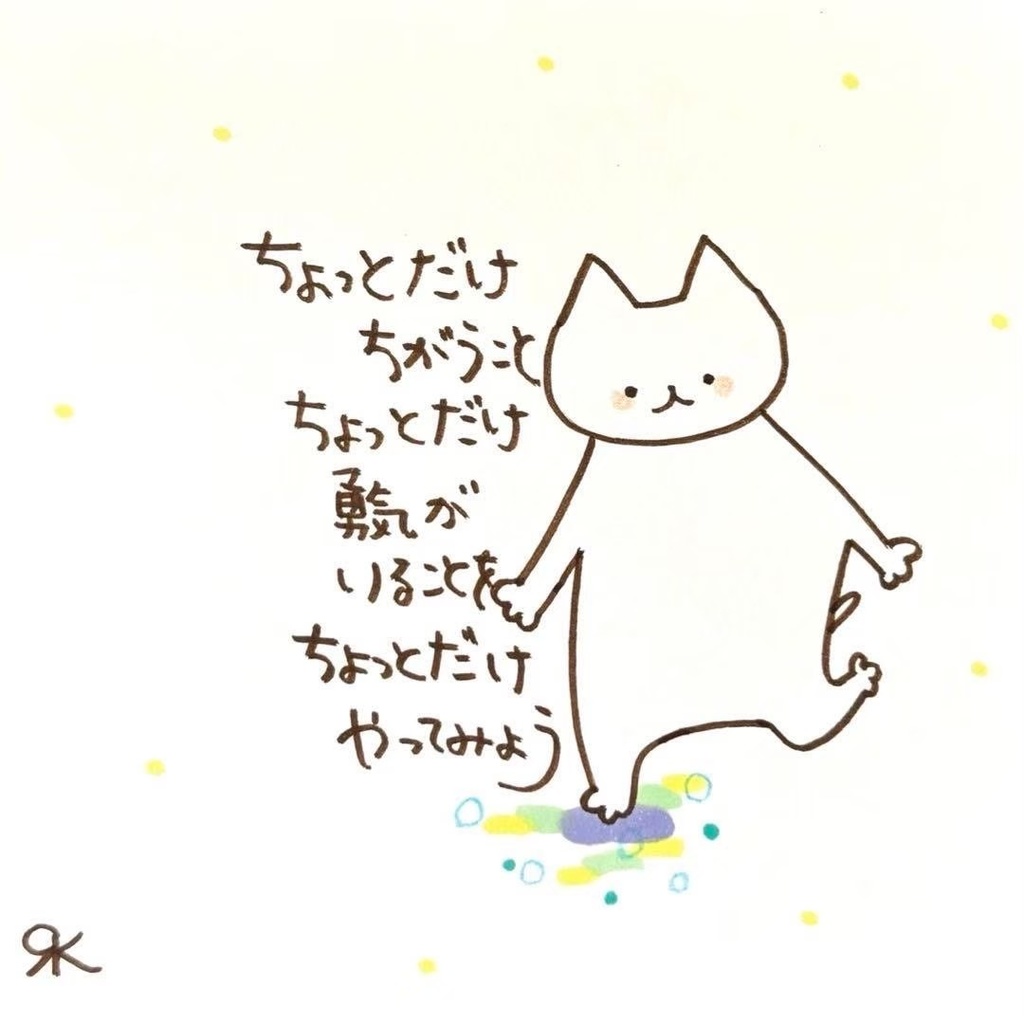 ちょっとだけ
ちがうこと
ちょっとだけ
勇気が
いることを
ちょっとだけ
やってみよう